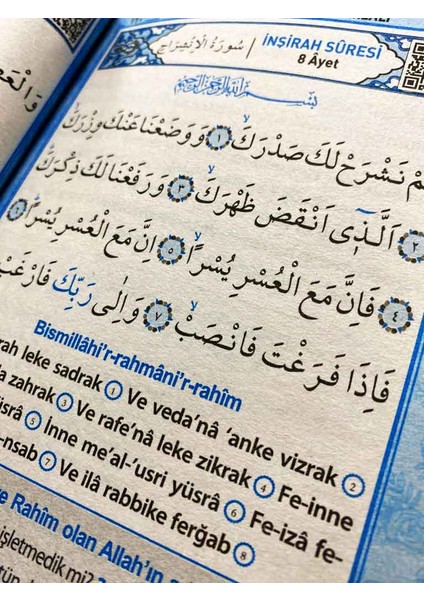 سُورَةُ الْاِنْشِرَاحِ
İNŞİRAH SÛRESİ
8 Âyet
بِسْمِ اللّٰهِ الرَّحْمٰنِ الرَّحِيمِ
نَشْرَحْ لَكَ صَدْرَكَۙ ١ وَوَضَعْنَا عَنْكَ وِزْرَكَۙ
٢ اَلَّذ۪ٓى اَنْقَضَ ظَهْرَكَۙ ٣ وَرَفَعْنَا لَكَ ذِكْرَكَۜ
٤ فَاِنَّ مَعَ الْعُسْرِ يُسْرًاۙ ٥ اِنَّ مَعَ الْعُسْرِ يُسْرًاۜ ٦
فَاِذَا فَرَغْتَ فَانْصَبْۙ ٧ وَاِلٰى رَبِّكَ
Bismillâhi'r-rahmâni'r-rahîm
leke sadrak 1 Ve veda'nâ 'anke vizrak 2
zahrak 3 Ve rafe'nâ leke zikrak 4 Fe-inne
5 İnne me'al-'usri yüsrâ 6 Fe-izâ fe-
7 Ve ilâ rabbike ferğab 8
Rahîm olan Allah'ın
işletmedik mi?